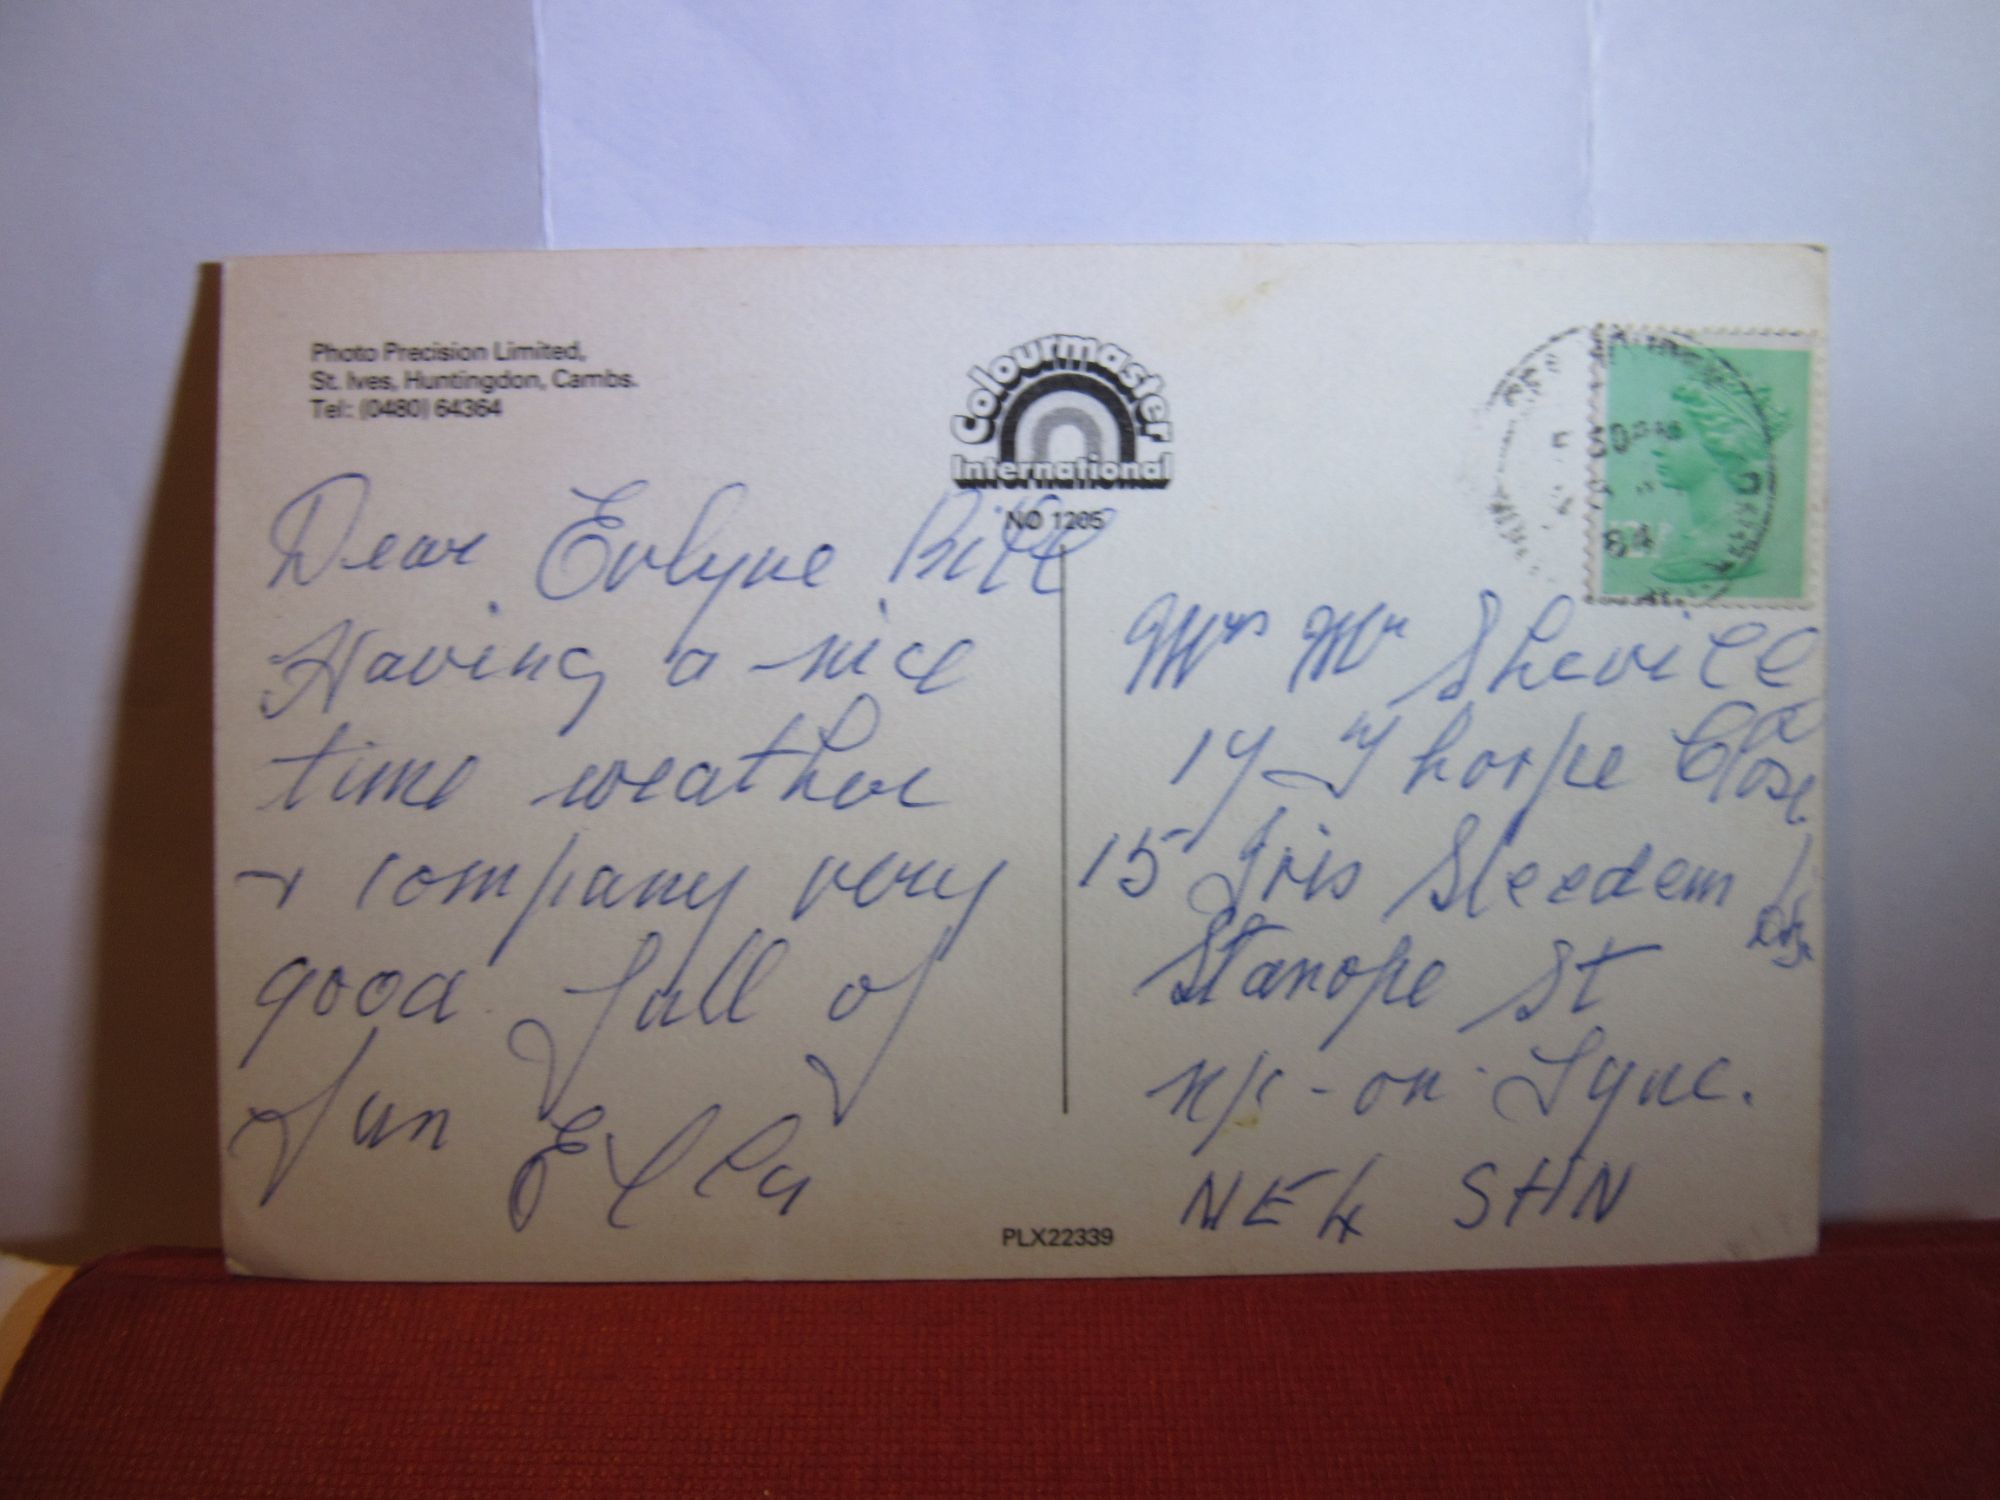 Photo Precision Limited,
St. Ives, Huntingdon, Cambs.
Tel: (0480) 64364
Colourmaster
International
NO 1205
Dear Evlyne Bill
Having a nice
time weather
+ company very
good full of
fun Ella
Mrs Mr Shevill
17 Thorpe Close
15 Iris Steedem
Stanope St
N/c-on-Tyne.
NE4 5HN
PLX22339
30PM
84